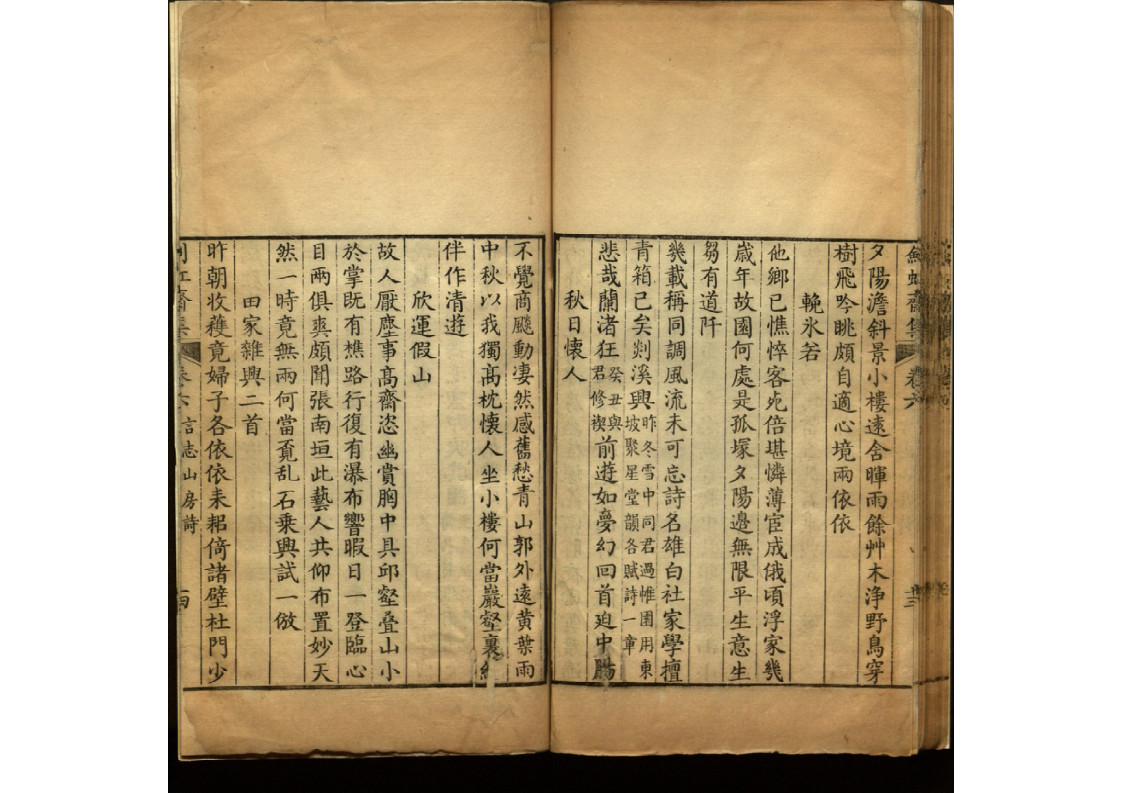 夕陽澹斜景小樓遠舍暉雨餘艸木淨野鳥穿
樹飛吟眺頗自適心境兩依依
輓氷若
他鄉已憔悴客死倍堪憐薄宦成俄頃浮家幾
歲年故園何處是孤塚夕陽邊無限平生意生
芻有道阡
幾載稱同調風流未可忘詩名雄白社家學擅
青箱已矣剡溪興昨冬雪中同君過惟園用東坡聚星堂韻各賦詩一章
悲哉蘭渚狂癸丑與君修禊前遊如夢幻回首迫中腸
秋日懷人
不覺商颷動凄然感舊愁青山郭外遠黄葉雨
中秋以我獨高枕懷人坐小樓何當巖壑裏
伴作清遊
欣運假山
故人厭塵事高齋恣幽賞胸中具邱壑叠山小
於掌既有樵路行復有瀑布響暇日一登臨心
目兩俱爽頗聞張南垣此藝人共仰布置妙天
然一時竟無兩何當覔乱石乘興試一倣
田家雜興二首
昨朝收穫竟婦子各依依耒耜倚諸壁杜門少
齋集 卷六 言志山房詩 十四